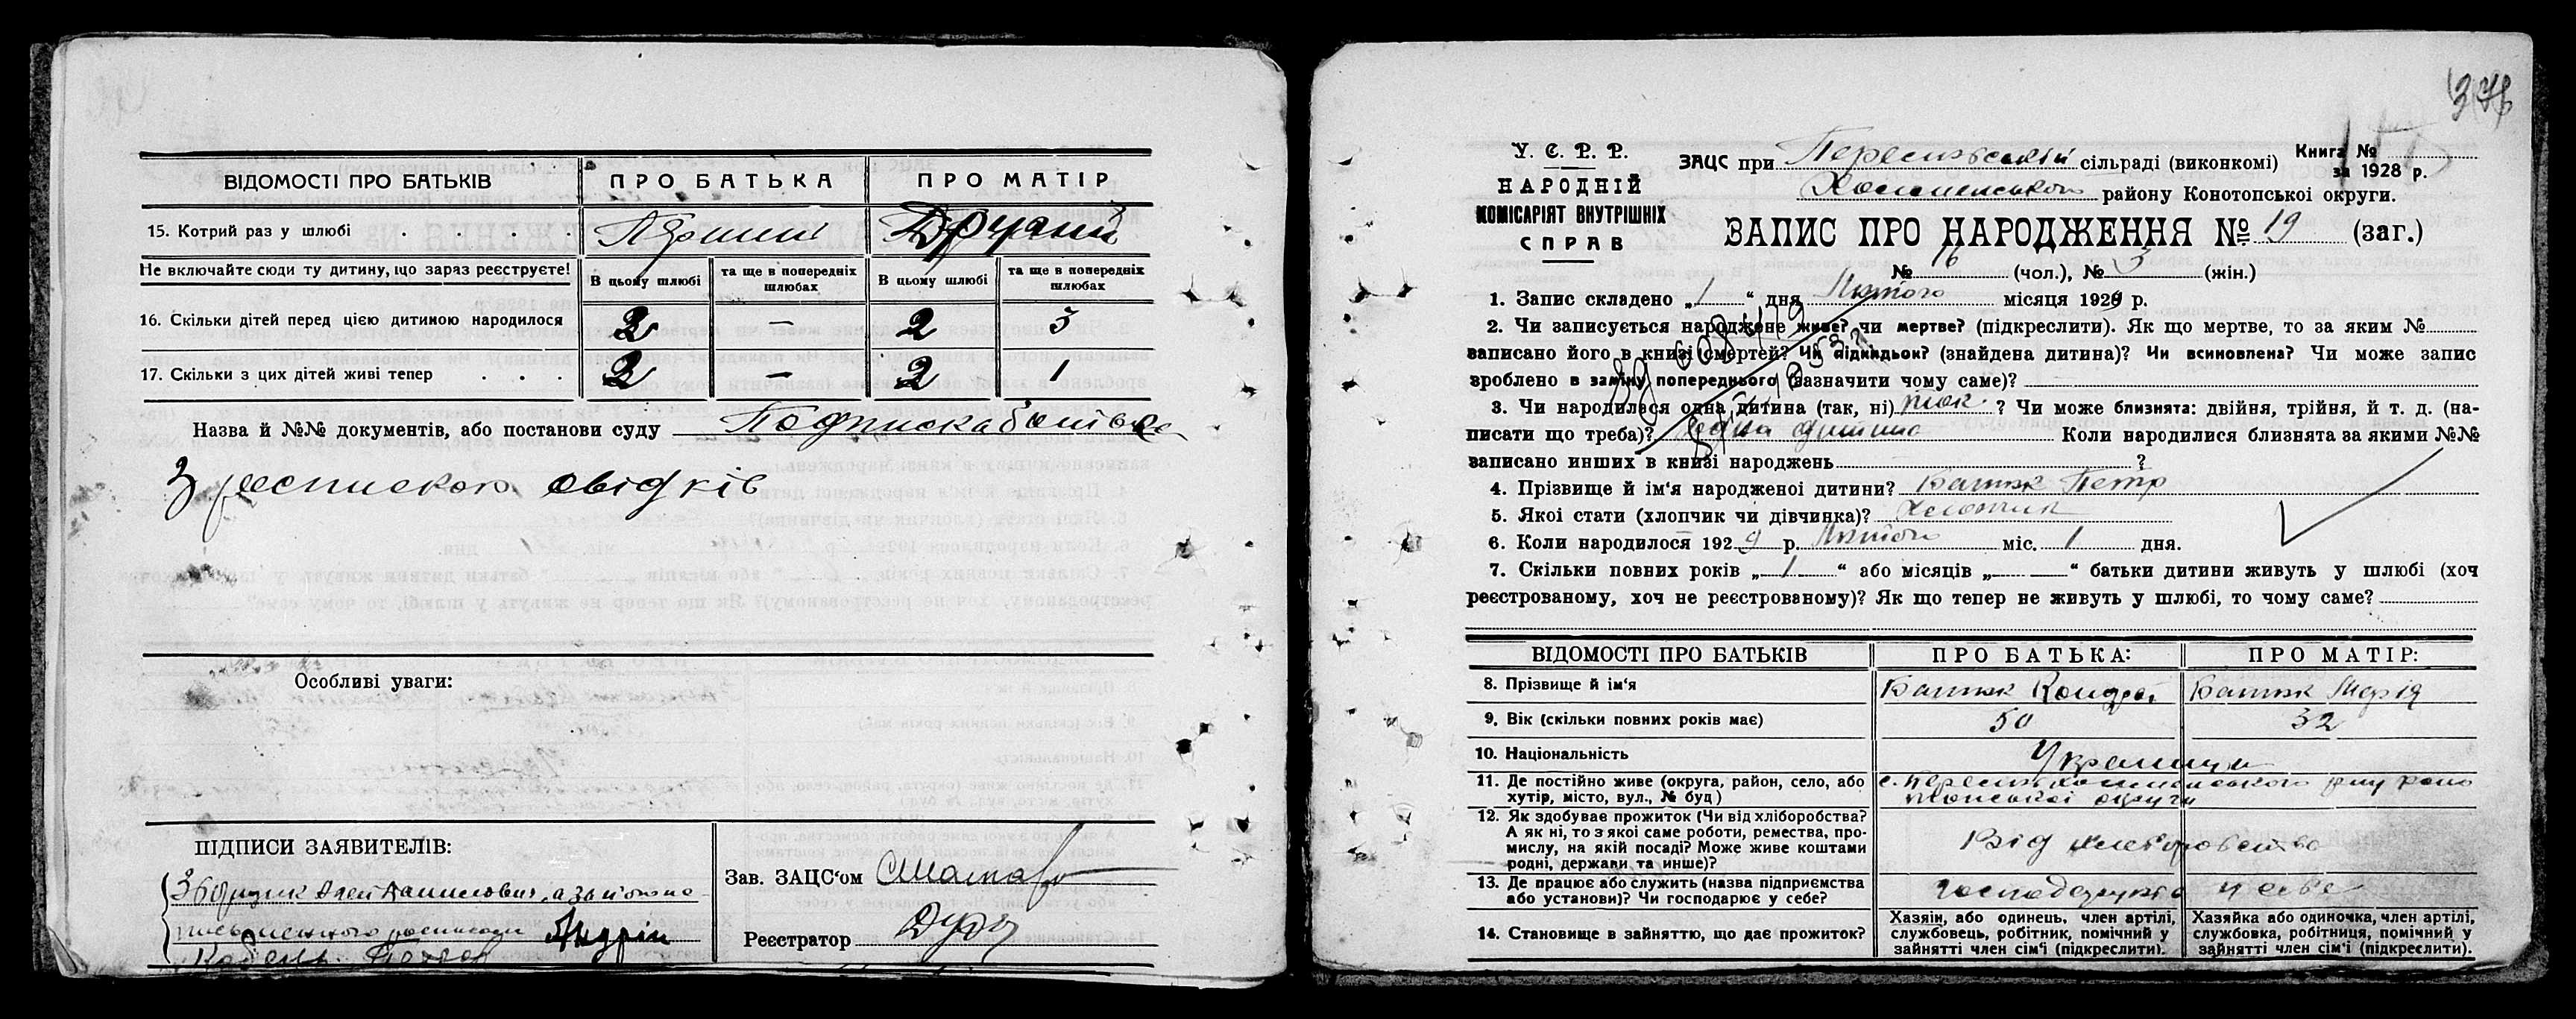 ВІДОМОСТІ ПРО БАТЬКІВ ПРО БАТЬКА ПРО МАТІР
15. Котрий раз у шлюбі . . . . Перший Другий
Не включайте сюди ту дитину, що зараз реєструєте! В цьому шлюбі та ще в попередніх шлюбах В цьому шлюбі та ще в попередніх шлюбах
16. Скільки дітей перед цією дитиною народилося 2 — 2 3
17. Скільки з цих дітей живі тепер . . . 2 — 2 1
Назва й №№ документів, або постанови суду Подписка батька
З роспискою свідків
Особливі уваги:
ПІДПИСИ ЗАЯВИТЕЛІВ:
Андрій
Зав. ЗАЦС‘ом
Реєстратор
У. С. Р. Р.
НАРОДНІЙ
КОМІСАРІЯТ ВНУТРІШНІХ
СПРАВ
ЗАЦС при сільраді (виконкомі) Книга №
за 1928 р.
району Конотопськоі округи.
ЗАПИС ПРО НАРОДЖЕННЯ № 19 (заг.)
№ 16 (чол.), № 3 (жін.)
1. Запис складено „1“ дня Лютого місяця 1929 р.
2. Чи записується народжене живе? чи мертве? (підкреслити). Як що мертве, то за яким №
записано його в книзі смертей? Чи підкидьок? (знайдена дитина)? Чи всиновлена? Чи може запис
зроблено в заміну попереднього (зазначити чому саме)?
3. Чи народилася одна дитина (так, ні) так ? Чи може близнята: двійня, трійня, й т. д. (на-
писати що треба)? Одна дитина Коли народилися близнята за якими №№
записано инших в книзі народжень — ?
4. Прізвище й ім‘я народженоі дитини? Батюк Петр
5. Якоі стати (хлопчик чи дівчинка)? Хлопчик
6. Коли народилося 1929 р. Лютого міс. 1 дня.
7. Скільки повних років „1“ або місяців „—“ батьки дитини живуть у шлюбі (хоч
реєстрованому, хоч не реєстрованому)? Як що тепер не живуть у шлюбі, то чому саме?
ВІДОМОСТІ ПРО БАТЬКІВ ПРО БАТЬКА: ПРО МАТІР:
8. Прізвище й ім‘я Батюк Кондрат Батюк Марія
9. Вік (скільки повних років має) 50 32
10. Національність Українці
11. Де постійно живе (округа, район, село, або
хутір, місто, вул., № буд)
12. Як здобуває прожиток (Чи від хліборобства?
А як ні, то з якої саме роботи, ремества, про-
мислу, на якій посаді? Може живе коштами
родні, держави та инше)? Від хліборобства
13. Де працює або служить (назва підприємства
або установи)? Чи господарює у себе? господарство у себе
14. Становище в зайняттю, що дає прожиток? Хазяін, або одинець, член артілі, службовець, робітник, помічний у зайнятті член сім‘і (підкреслити). Хазяйка або одиночка, член артілі, службовка, робітниця, помічний у зайнятті член сім‘і (підкреслити).